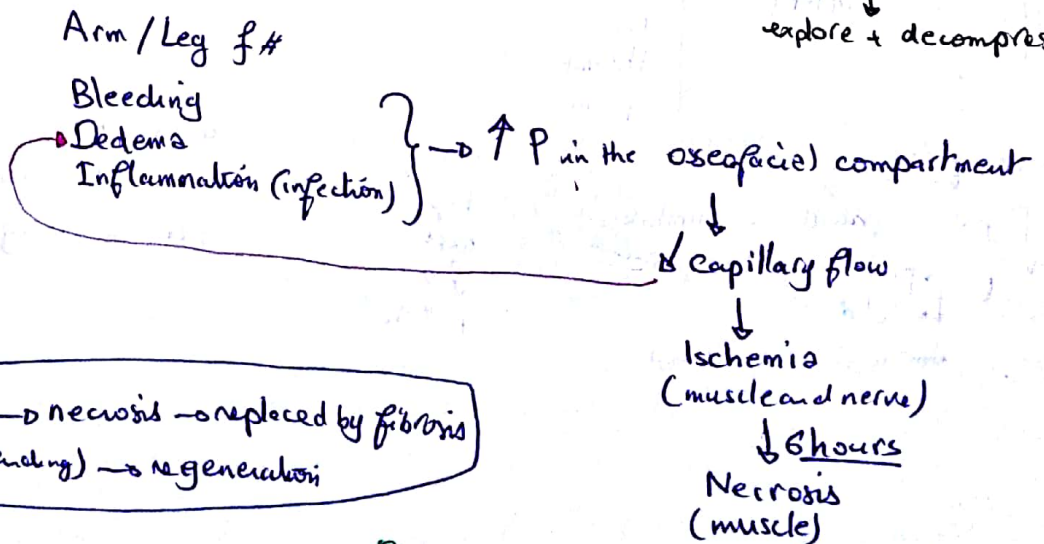 explore + decompres
Arm / Leg f#
Bleeding
Oedema
Inflammation (infection)
→ ↑ P in the oseofacial compartment
↓
↓ capillary flow
↓
Ischemia
(muscle and nerve)
↓ 6 hours
Necrosis
(muscle)
→ necrosis → replaced by fibrosis
nding) → regeneration